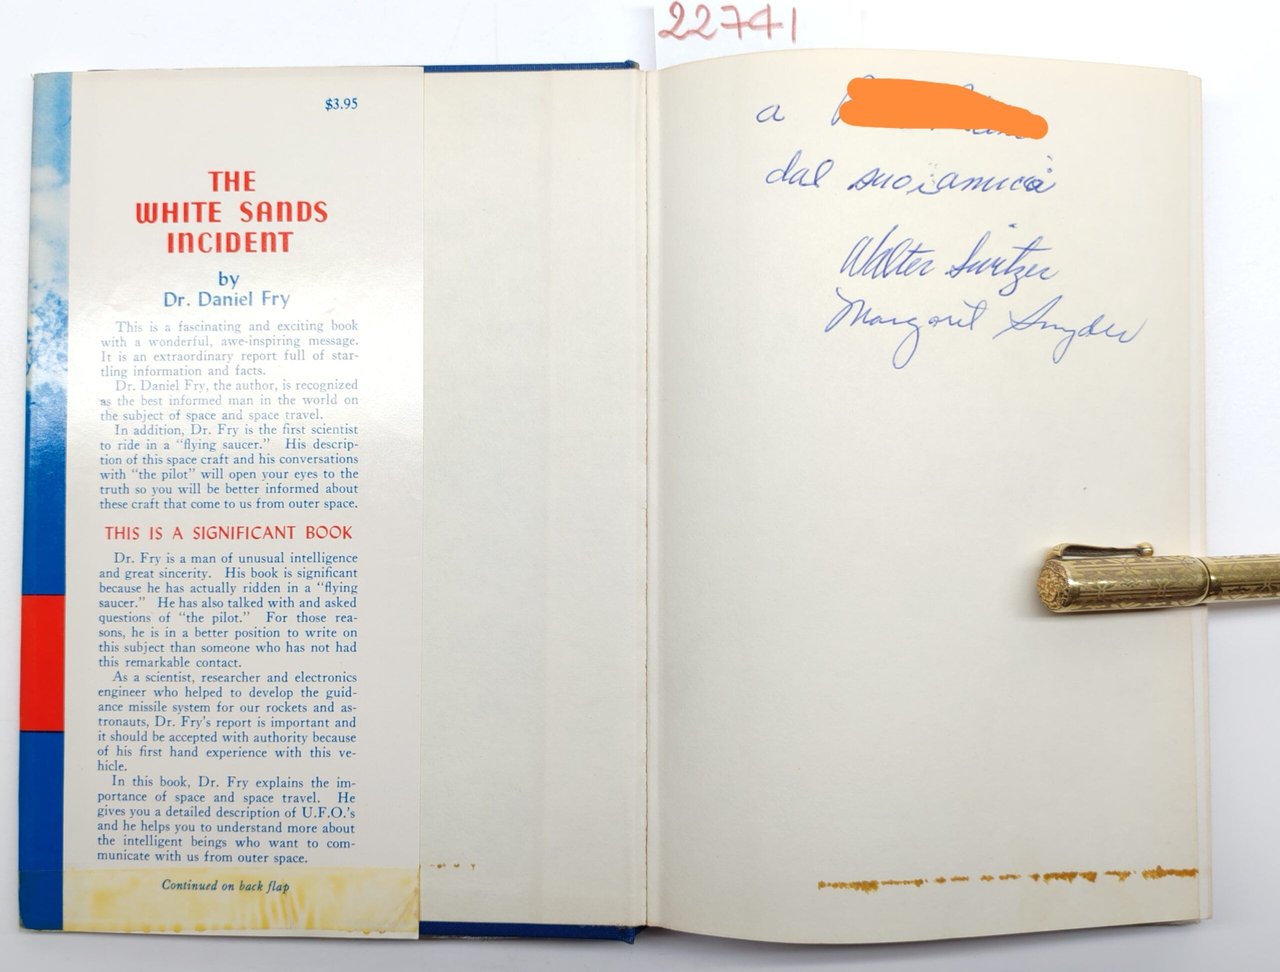 22741
$3.95
THE
WHITE SANDS
INCIDENT
by
Dr. Daniel Fry
This is a fascinating and exciting book
with a wonderful, awe-inspiring message.
It is an extraordinary report full of star-
tling information and facts.
Dr. Daniel Fry, the author, is recognized
as the best informed man in the world on
the subject of space and space travel.
In addition, Dr. Fry is the first scientist
to ride in a "flying saucer." His descrip-
tion of this space craft and his conversations
with "the pilot" will open your eyes to the
truth so you will be better informed about
these craft that come to us from outer space.
THIS IS A SIGNIFICANT BOOK
Dr. Fry is a man of unusual intelligence
and great sincerity. His book is significant
because he has actually ridden in a "flying
saucer." He has also talked with and asked
questions of "the pilot." For those rea-
sons, he is in a better position to write on
this subject than someone who has not had
this remarkable contact.
As a scientist, researcher and electronics
engineer who helped to develop the guid-
ance missile system for our rockets and as-
tronauts, Dr. Fry's report is important and
it should be accepted with authority because
of his first hand experience with this ve-
hicle.
In this book, Dr. Fry explains the im-
portance of space and space travel. He
gives you a detailed description of U.F.O.'s
and he helps you to understand more about
the intelligent beings who want to com-
municate with us from outer space.
Continued on back flap
a
dal suoi
Walter Switzer
Margaret Snyder